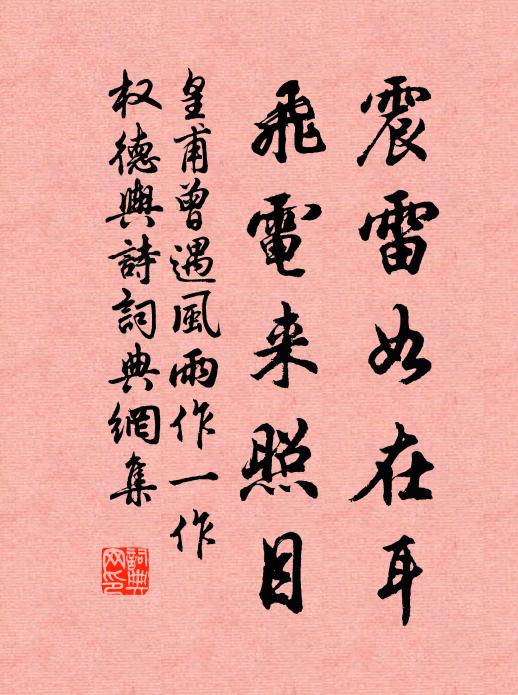 震雷如在耳
飛電来照目
皇甫曾遇風雨作一作
权德輿詩詞典網集
詞典网印